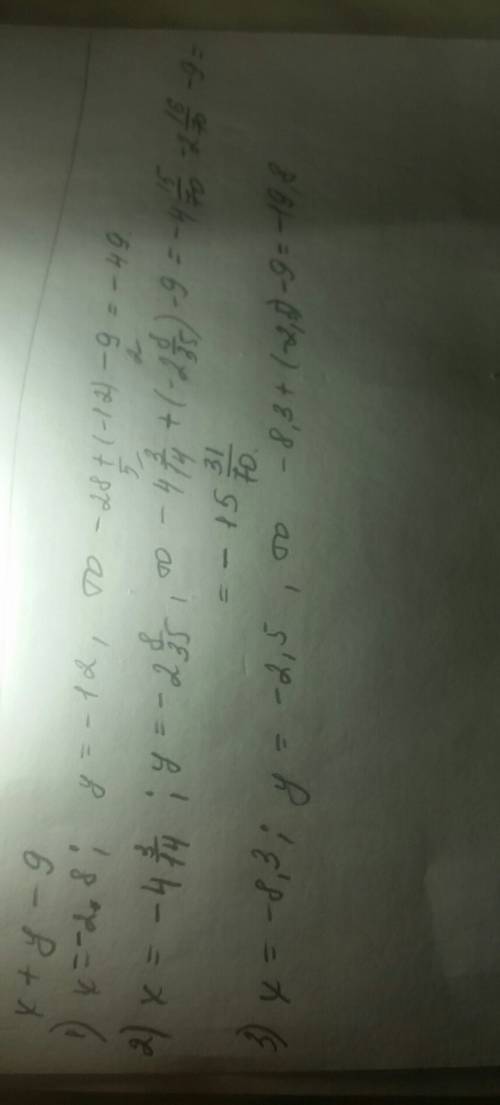 x + y - 9
1) x = -28; y = -12, то -28 + (-12) - 9 = -49.
2) x = -4 3/14; y = -2 8/35, то -4 3/14 + (-2 8/35) - 9 = -4 15/70 - 2 16/70 - 9 =
= -15 31/70.
3) x = -8,3; y = -2,5, то -8,3 + (-2,5) - 9 = -19,8